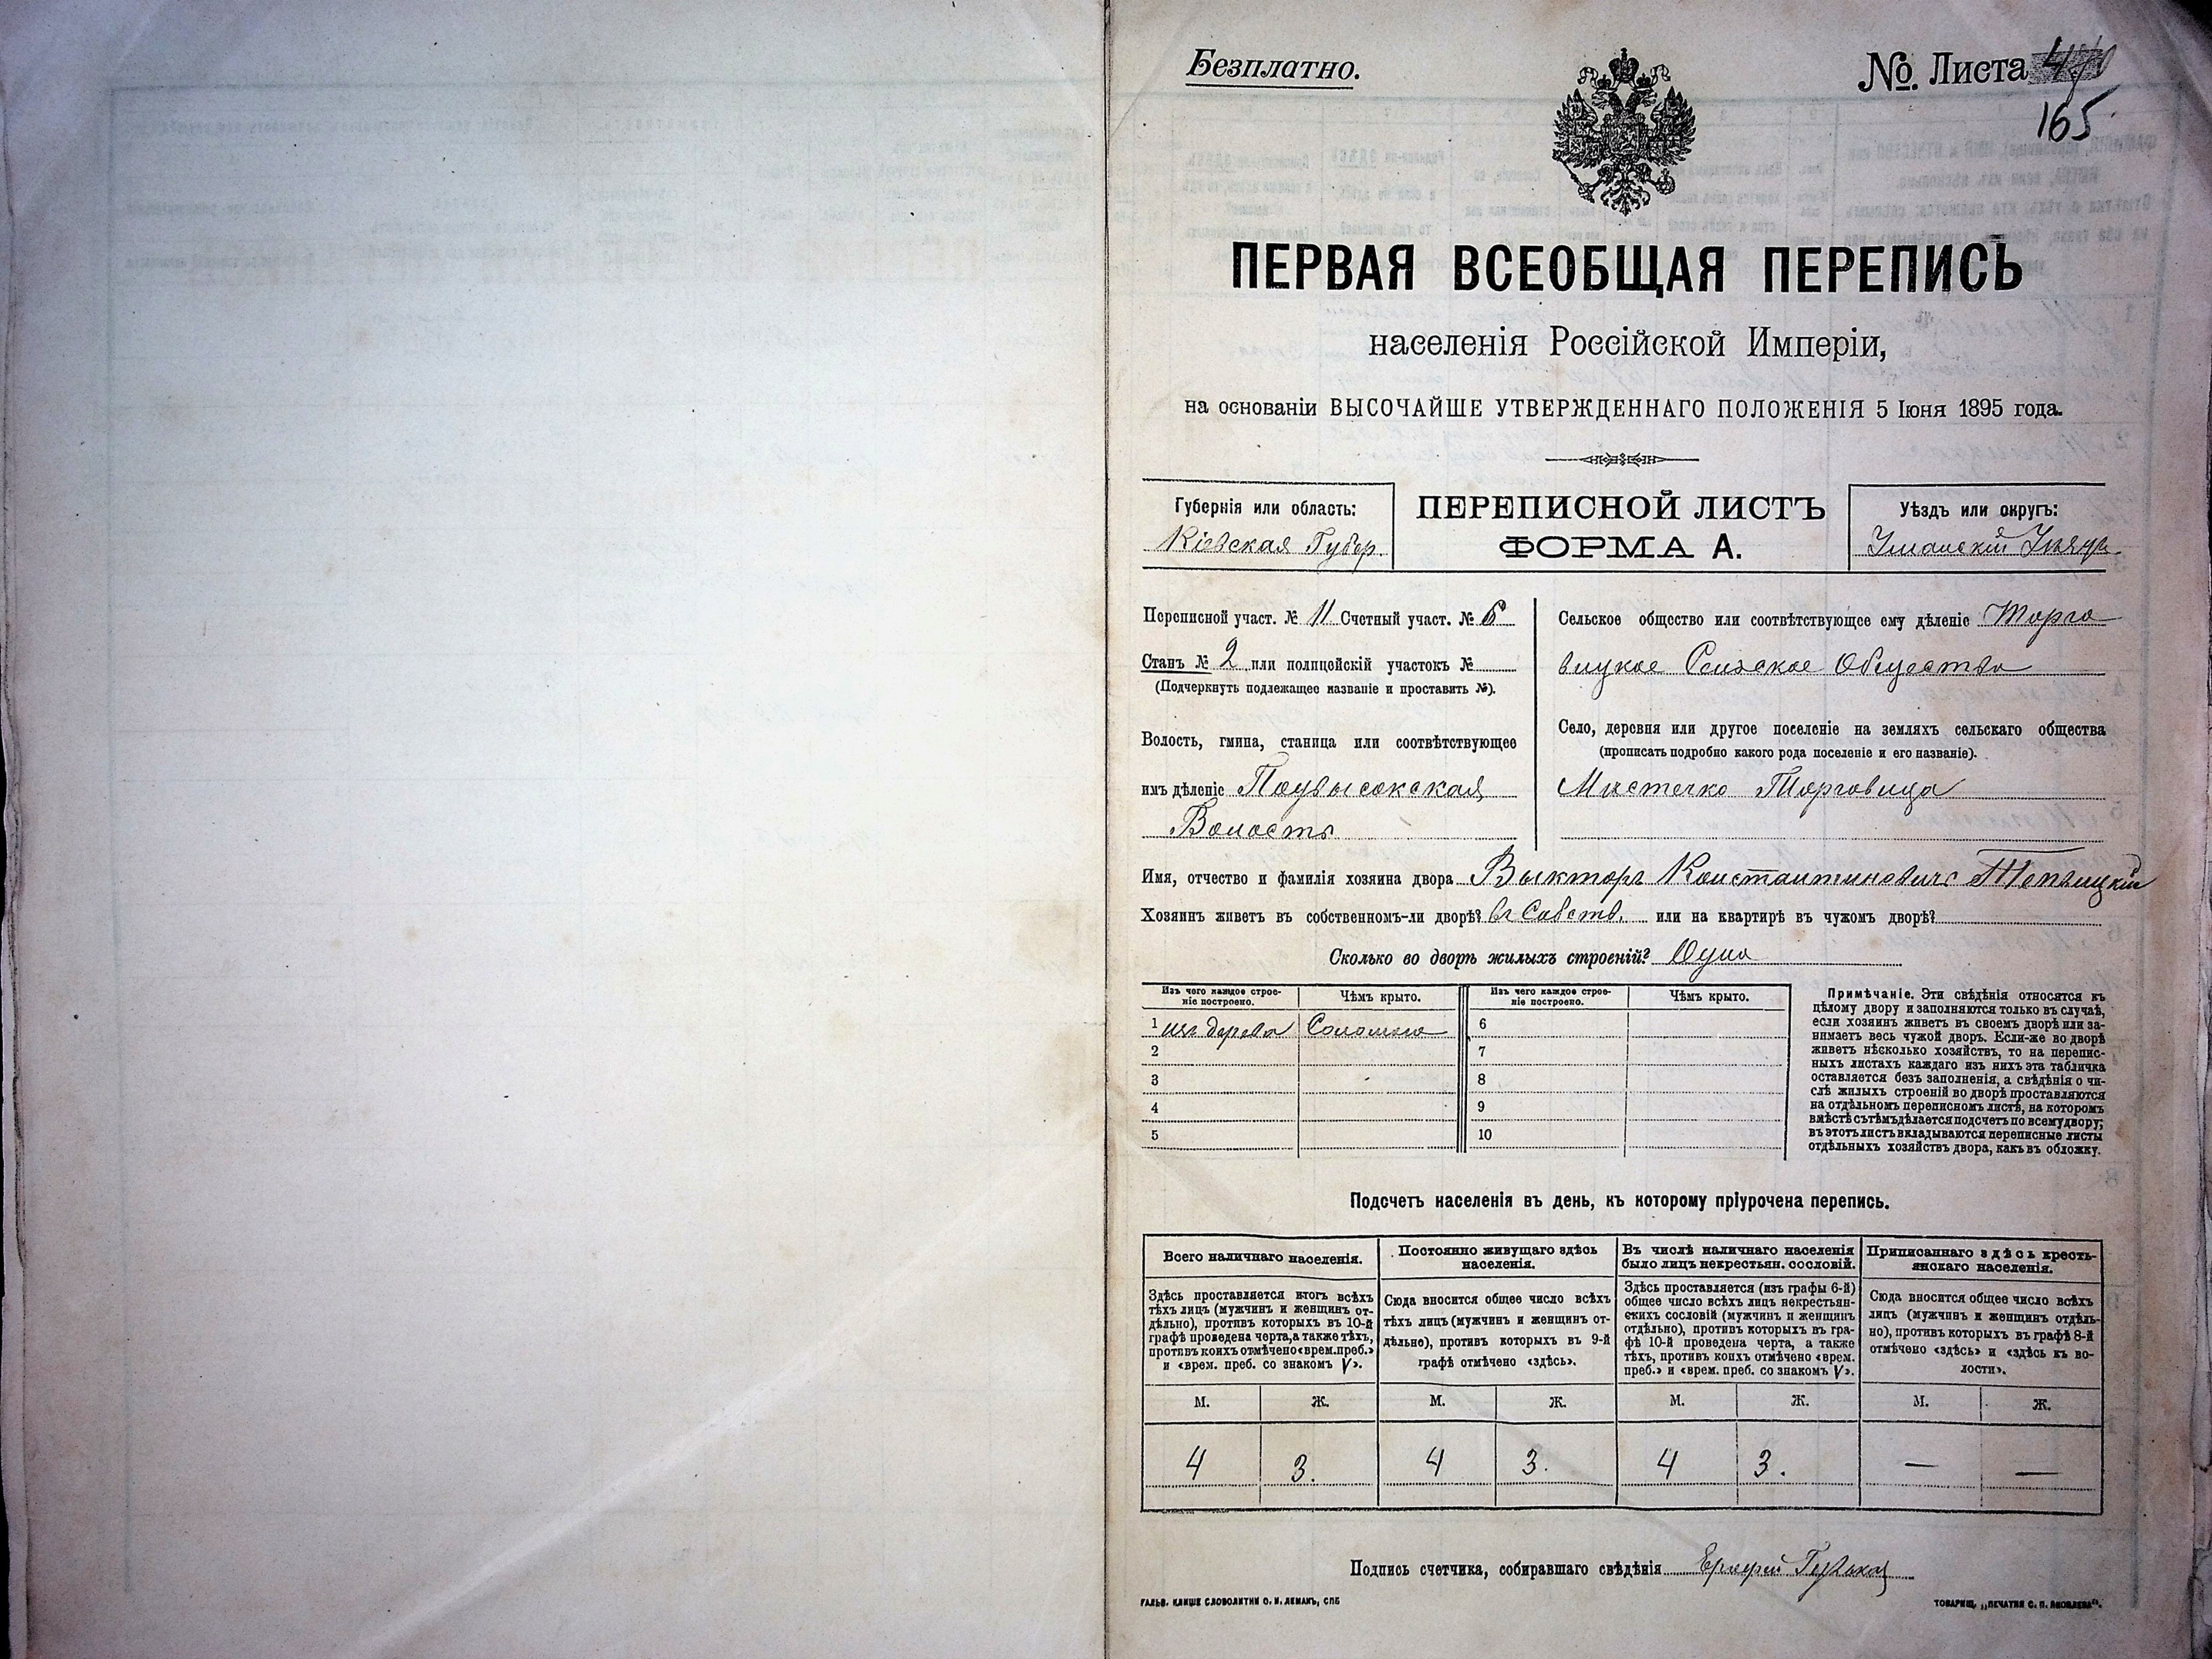 Безплатно.
№. Листа
165
ПЕРВАЯ ВСЕОБЩАЯ ПЕРЕПИСЬ
населенія Россійской Имперіи,
на основаніи ВЫСОЧАЙШЕ УТВЕРЖДЕННАГО ПОЛОЖЕНІЯ 5 Іюня 1895 года.
Губернія или область:
Кіевская Губер.
ПЕРЕПИСНОЙ ЛИСТЪ
ФОРМА А.
Уѣздъ или округъ:
Уманскій Уѣздъ.
Переписной участ. № 11 Счетный участ. № 6
Станъ № 2 или полицейскій участокъ №
(Подчеркнуть подлежащее названіе и проставить №).
Волость, гмина, станица или соотвѣтствующее
имъ дѣленіе Подвысокская
Волость
Сельское общество или соотвѣтствующее ему дѣленіе Торго
вицкое Сельское Общество
Село, деревня или другое поселеніе на земляхъ сельскаго общества
(прописать подробно какого рода поселеніе и его названіе).
Мистечко Торговица
Имя, отчество и фамилія хозяина двора Викторъ Константиновичъ
Хозяинъ живетъ въ собственномъ-ли дворѣ? въ Собств. или на квартирѣ въ чужомъ дворѣ?
Сколько во дворѣ жилыхъ строеній? Одна
Изъ чего каждое строе-
ніе построено.
Чѣмъ крыто.
Изъ чего каждое строе-
ніе построено.
Чѣмъ крыто.
1 изъ дерева Соломою 6
2 7
3 8
4 9
5 10
Примѣчаніе. Эти свѣдѣнія относятся къ
цѣлому двору и заполняются только въ случаѣ,
если хозяинъ живетъ въ своемъ дворѣ или за-
нимаетъ весь чужой дворъ. Если-же во дворѣ
живетъ нѣсколько хозяйствъ, то на перепис-
ныхъ листахъ каждаго изъ нихъ эта табличка
оставляется безъ заполненія, а свѣдѣнія о чи-
слѣ жилыхъ строеній во дворѣ проставляются
на отдѣльномъ переписномъ листѣ, на которомъ
вмѣстѣ съ тѣмъ дѣлается подсчетъ по всему двору;
въ этотъ листъ вкладываются переписные листы
отдѣльныхъ хозяйствъ двора, какъ въ обложку.
Подсчетъ населенія въ день, къ которому пріурочена перепись.
Всего наличнаго населенія.
Здѣсь проставляется итогъ всѣхъ
тѣхъ лицъ (мужчинъ и женщинъ от-
дѣльно), противъ которыхъ въ 10-й
графѣ проведена черта, а также тѣхъ,
противъ коихъ отмѣчено «врем. преб.»
и «врем. преб. со знакомъ V».
Постоянно живущаго здѣсь
населенія.
Сюда вносится общее число всѣхъ
тѣхъ лицъ (мужчинъ и женщинъ от-
дѣльно), противъ которыхъ въ 9-й
графѣ отмѣчено «здѣсь».
Въ числѣ наличнаго населенія
было лицъ некрестьян. сословій.
Здѣсь проставляется (изъ графы 6-й)
общее число всѣхъ лицъ некрестьян-
скихъ сословій (мужчинъ и женщинъ
отдѣльно), противъ которыхъ въ гра-
фѣ 10-й проведена черта, а также
тѣхъ, противъ коихъ отмѣчено «врем.
преб.» и «врем. преб. со знакомъ V».
Приписаннаго здѣсь кресть-
янскаго населенія.
Сюда вносится общее число всѣхъ
лицъ (мужчинъ и женщинъ отдѣль-
но), противъ которыхъ въ графѣ 8-й
отмѣчено «здѣсь» и «здѣсь къ во-
лости».
М. Ж. М. Ж. М. Ж. М. Ж.
4 3. 4 3. 4 3. — —
Подпись счетчика, собиравшаго свѣдѣнія
ГАЛЬВ. КЛИШЕ СЛОВОЛИТНИ О. И. ЛЕМАНЪ, СПБ
ТОВАРИЩ. „ПЕЧАТНЯ С. П. ЯКОВЛЕВА".